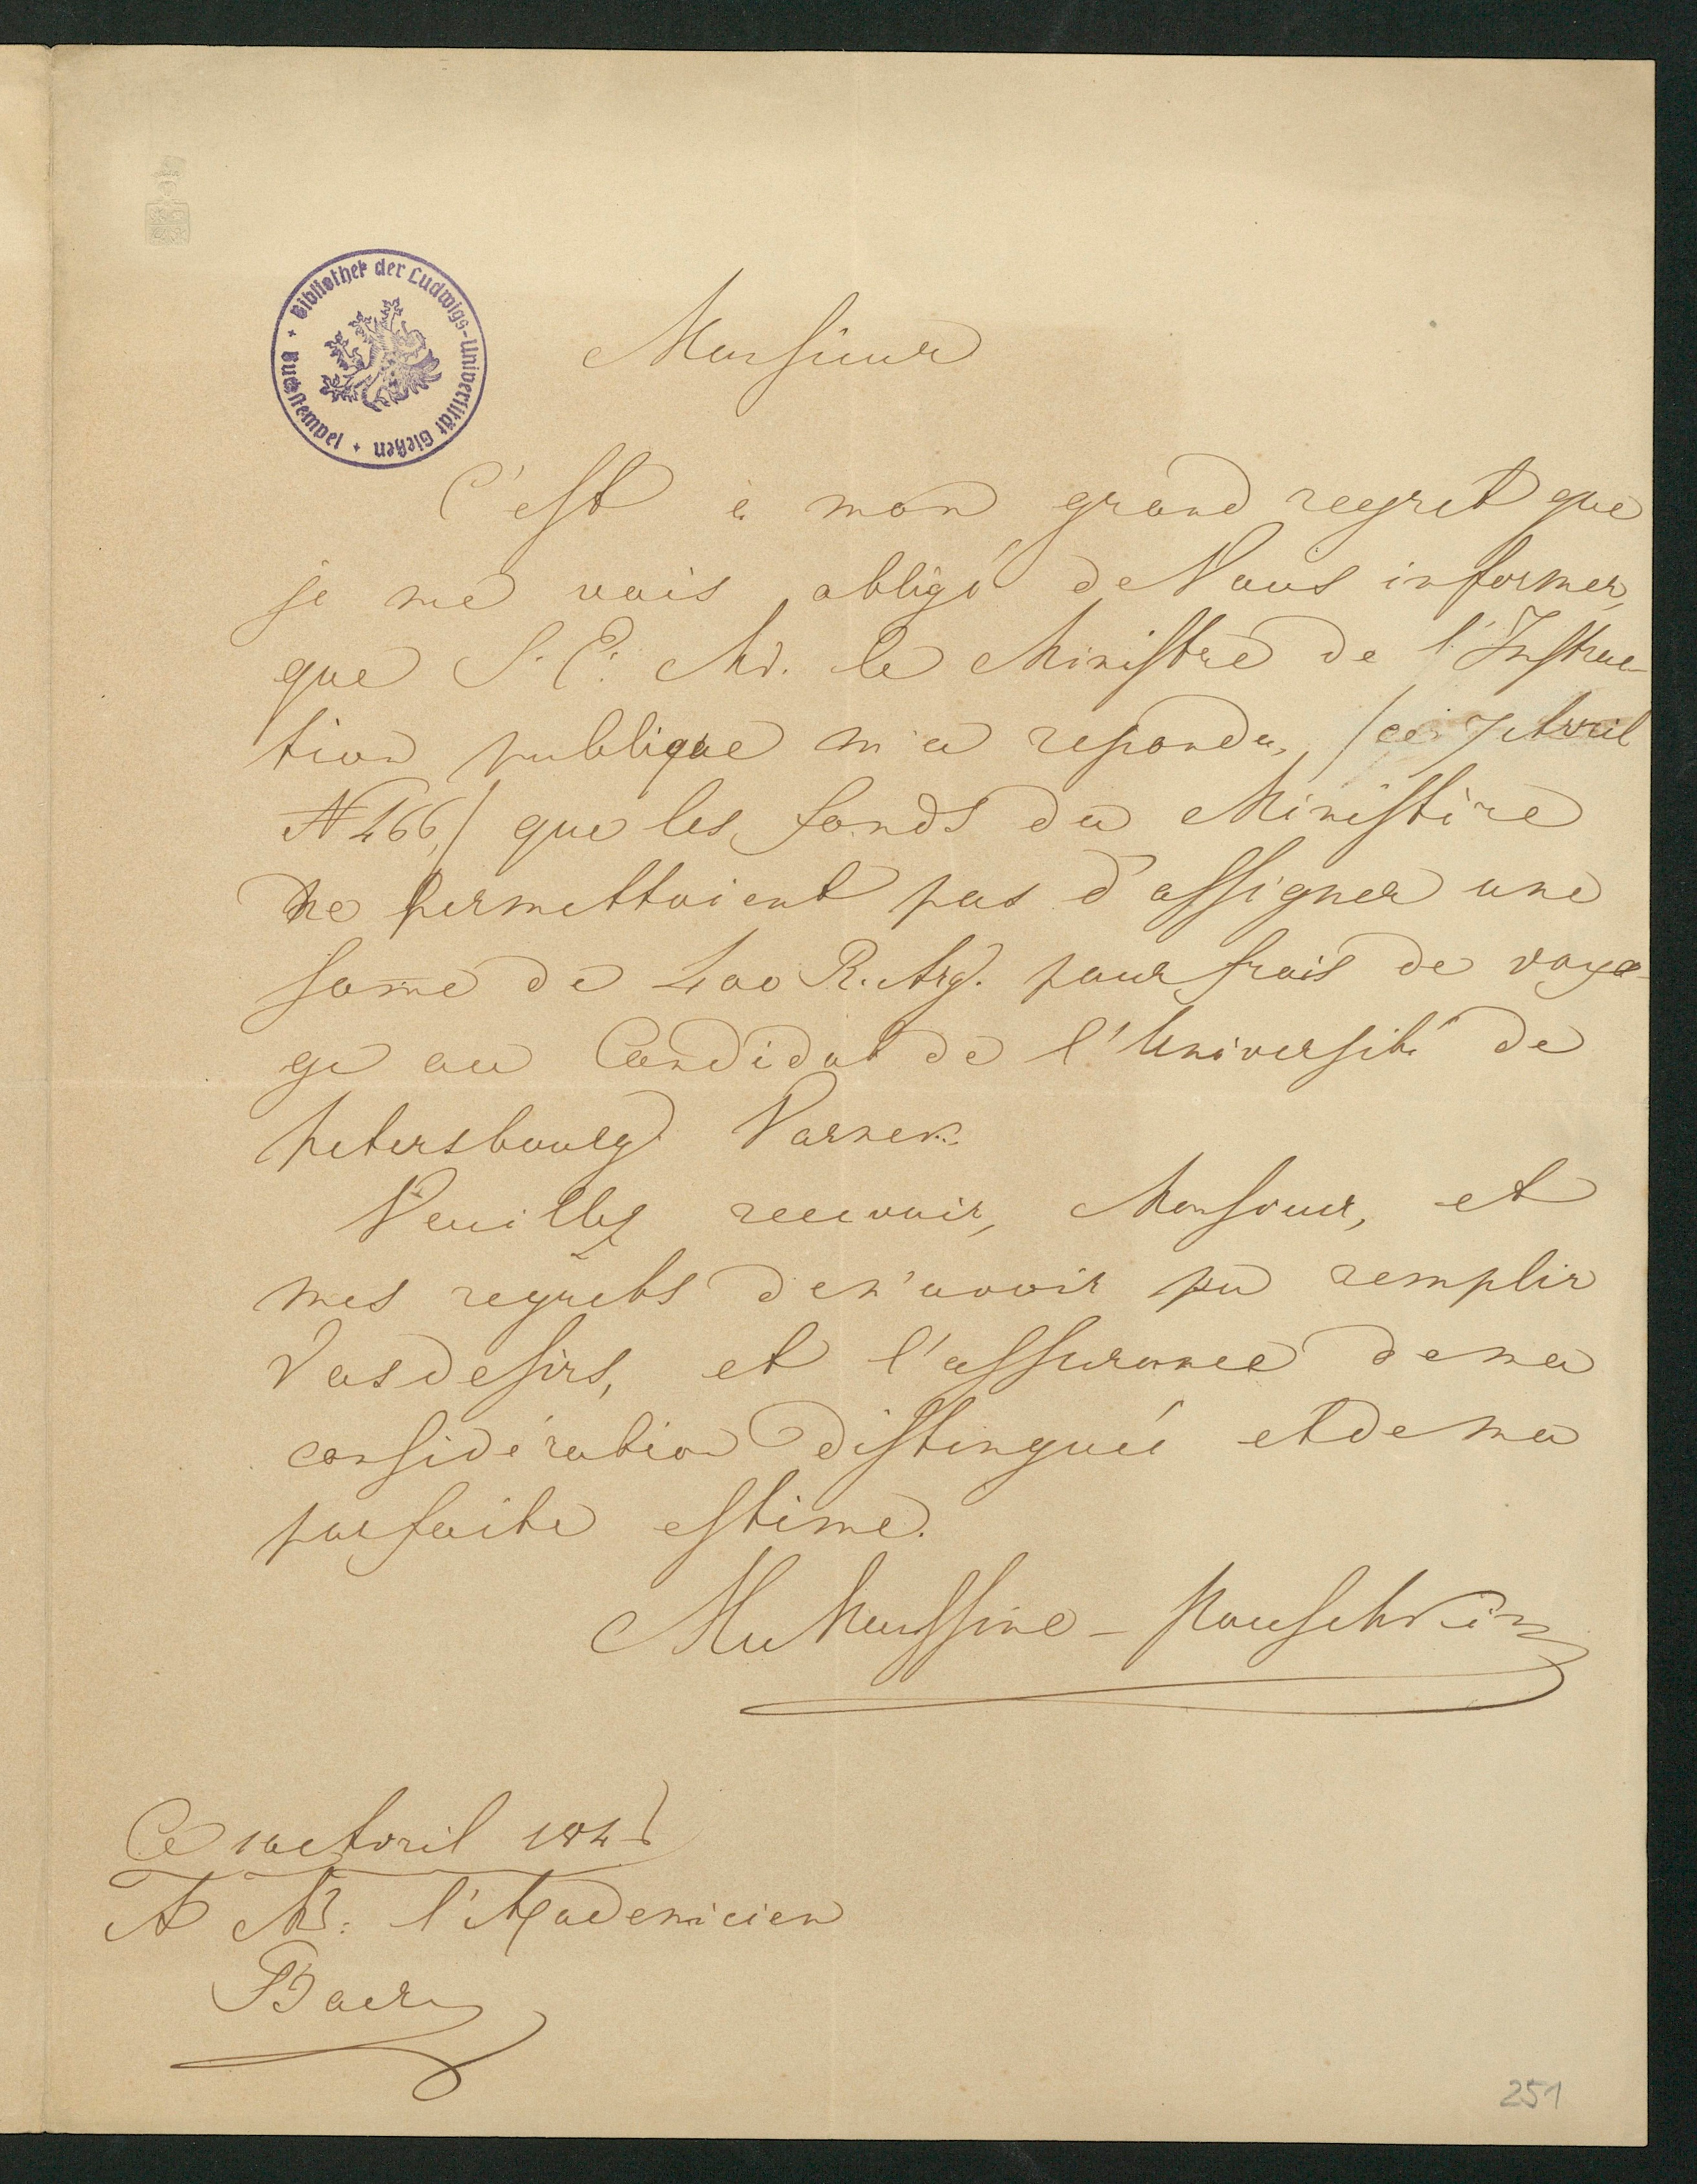 Bibliothek der Ludwigs-Universität Gießen + Buchstempel +
Monsieur
C'est à mon grand regret que
je me vois obligé de Vous informer,
que S. E. Mr. le Ministre de l'Instruc-
tion publique m'a repondu, /ce 7 Avril
N 466,/ que les fonds du Ministère
ne permettoient pas d'assigner une
some de 400 R. Arg. pour frais de voya-
ge au Candidat de l'Université de
Petersbourg Varnek.
Veuillez recevoir, Monsieur, et
mes regrets de n'avoir pu remplir
Vos desirs, et l'assurance de ma
considération distinguée et de ma
parfaite estime.
Mussine-Pouschkin
Ce 10 Avril 184
A Mr. l'Academicien
Baer
251